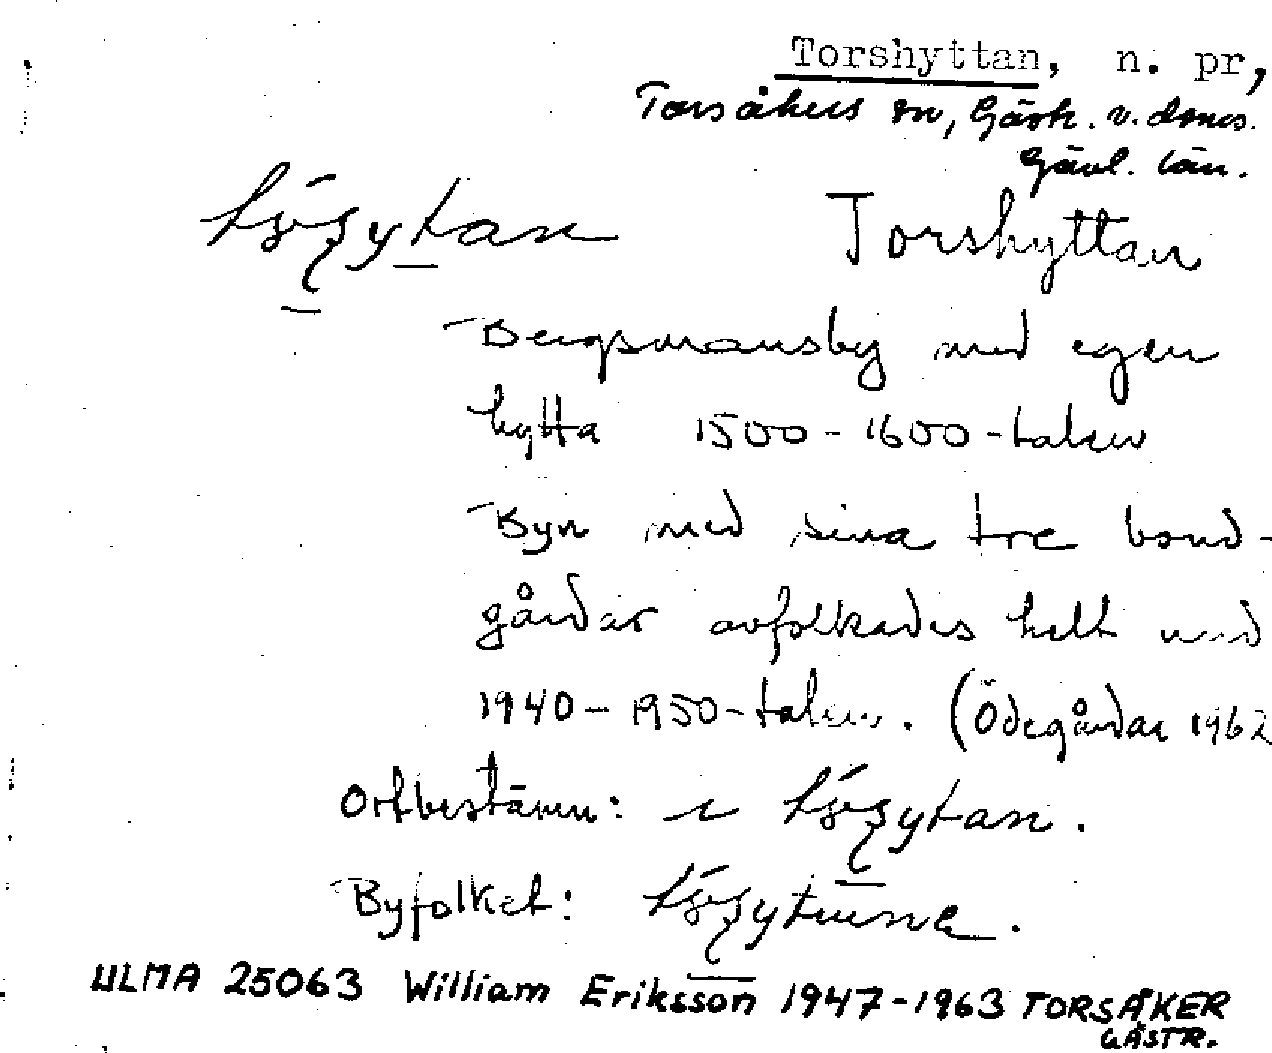 Torshyttan, n. pr,
Torsåkers sn, Gästr. v. doms.
Gävl. län.
Torshyttan
Bergsmansby med egen
hytta 1500-1600-talen
Byn med sina tre bond-
gårdar avfolkades helt med
1940-1950-talen. (Ödegårdar 1962
Ortbestämn: i
Byfolket:
ULMA 25063 William Eriksson 1947-1963 TORSÅKER
GÄSTR.